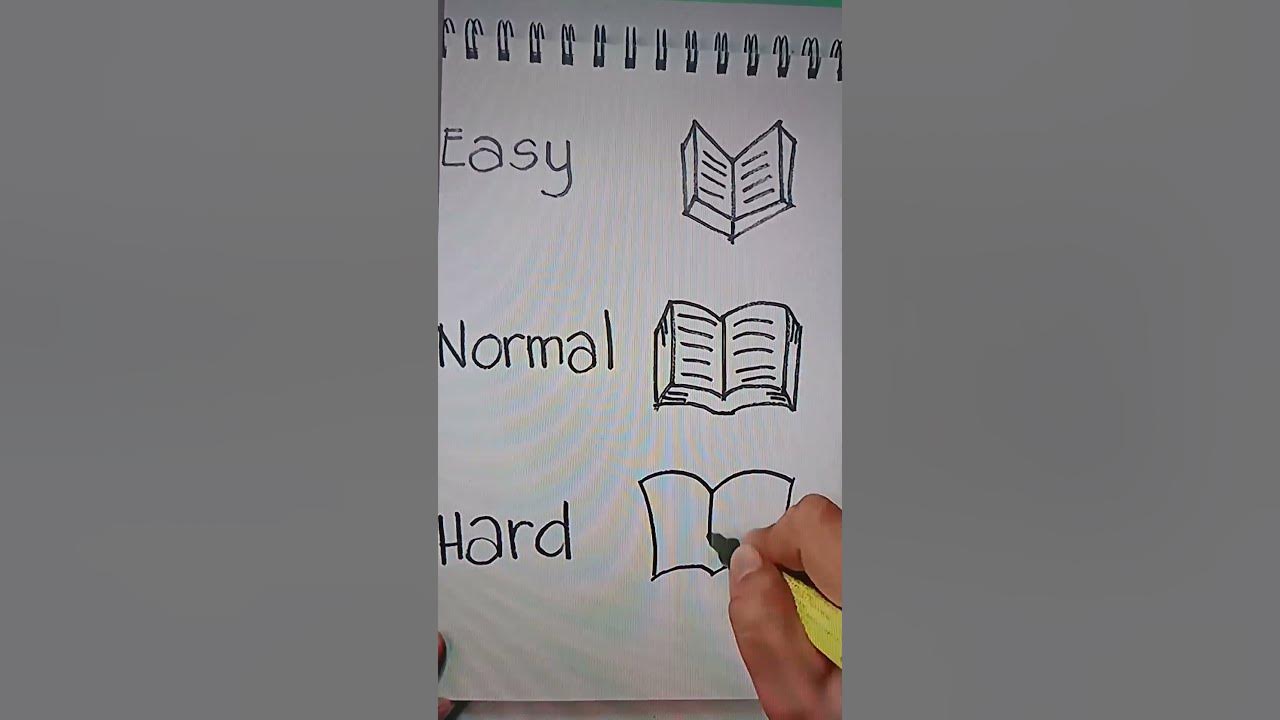 Easy
Normal
Hard